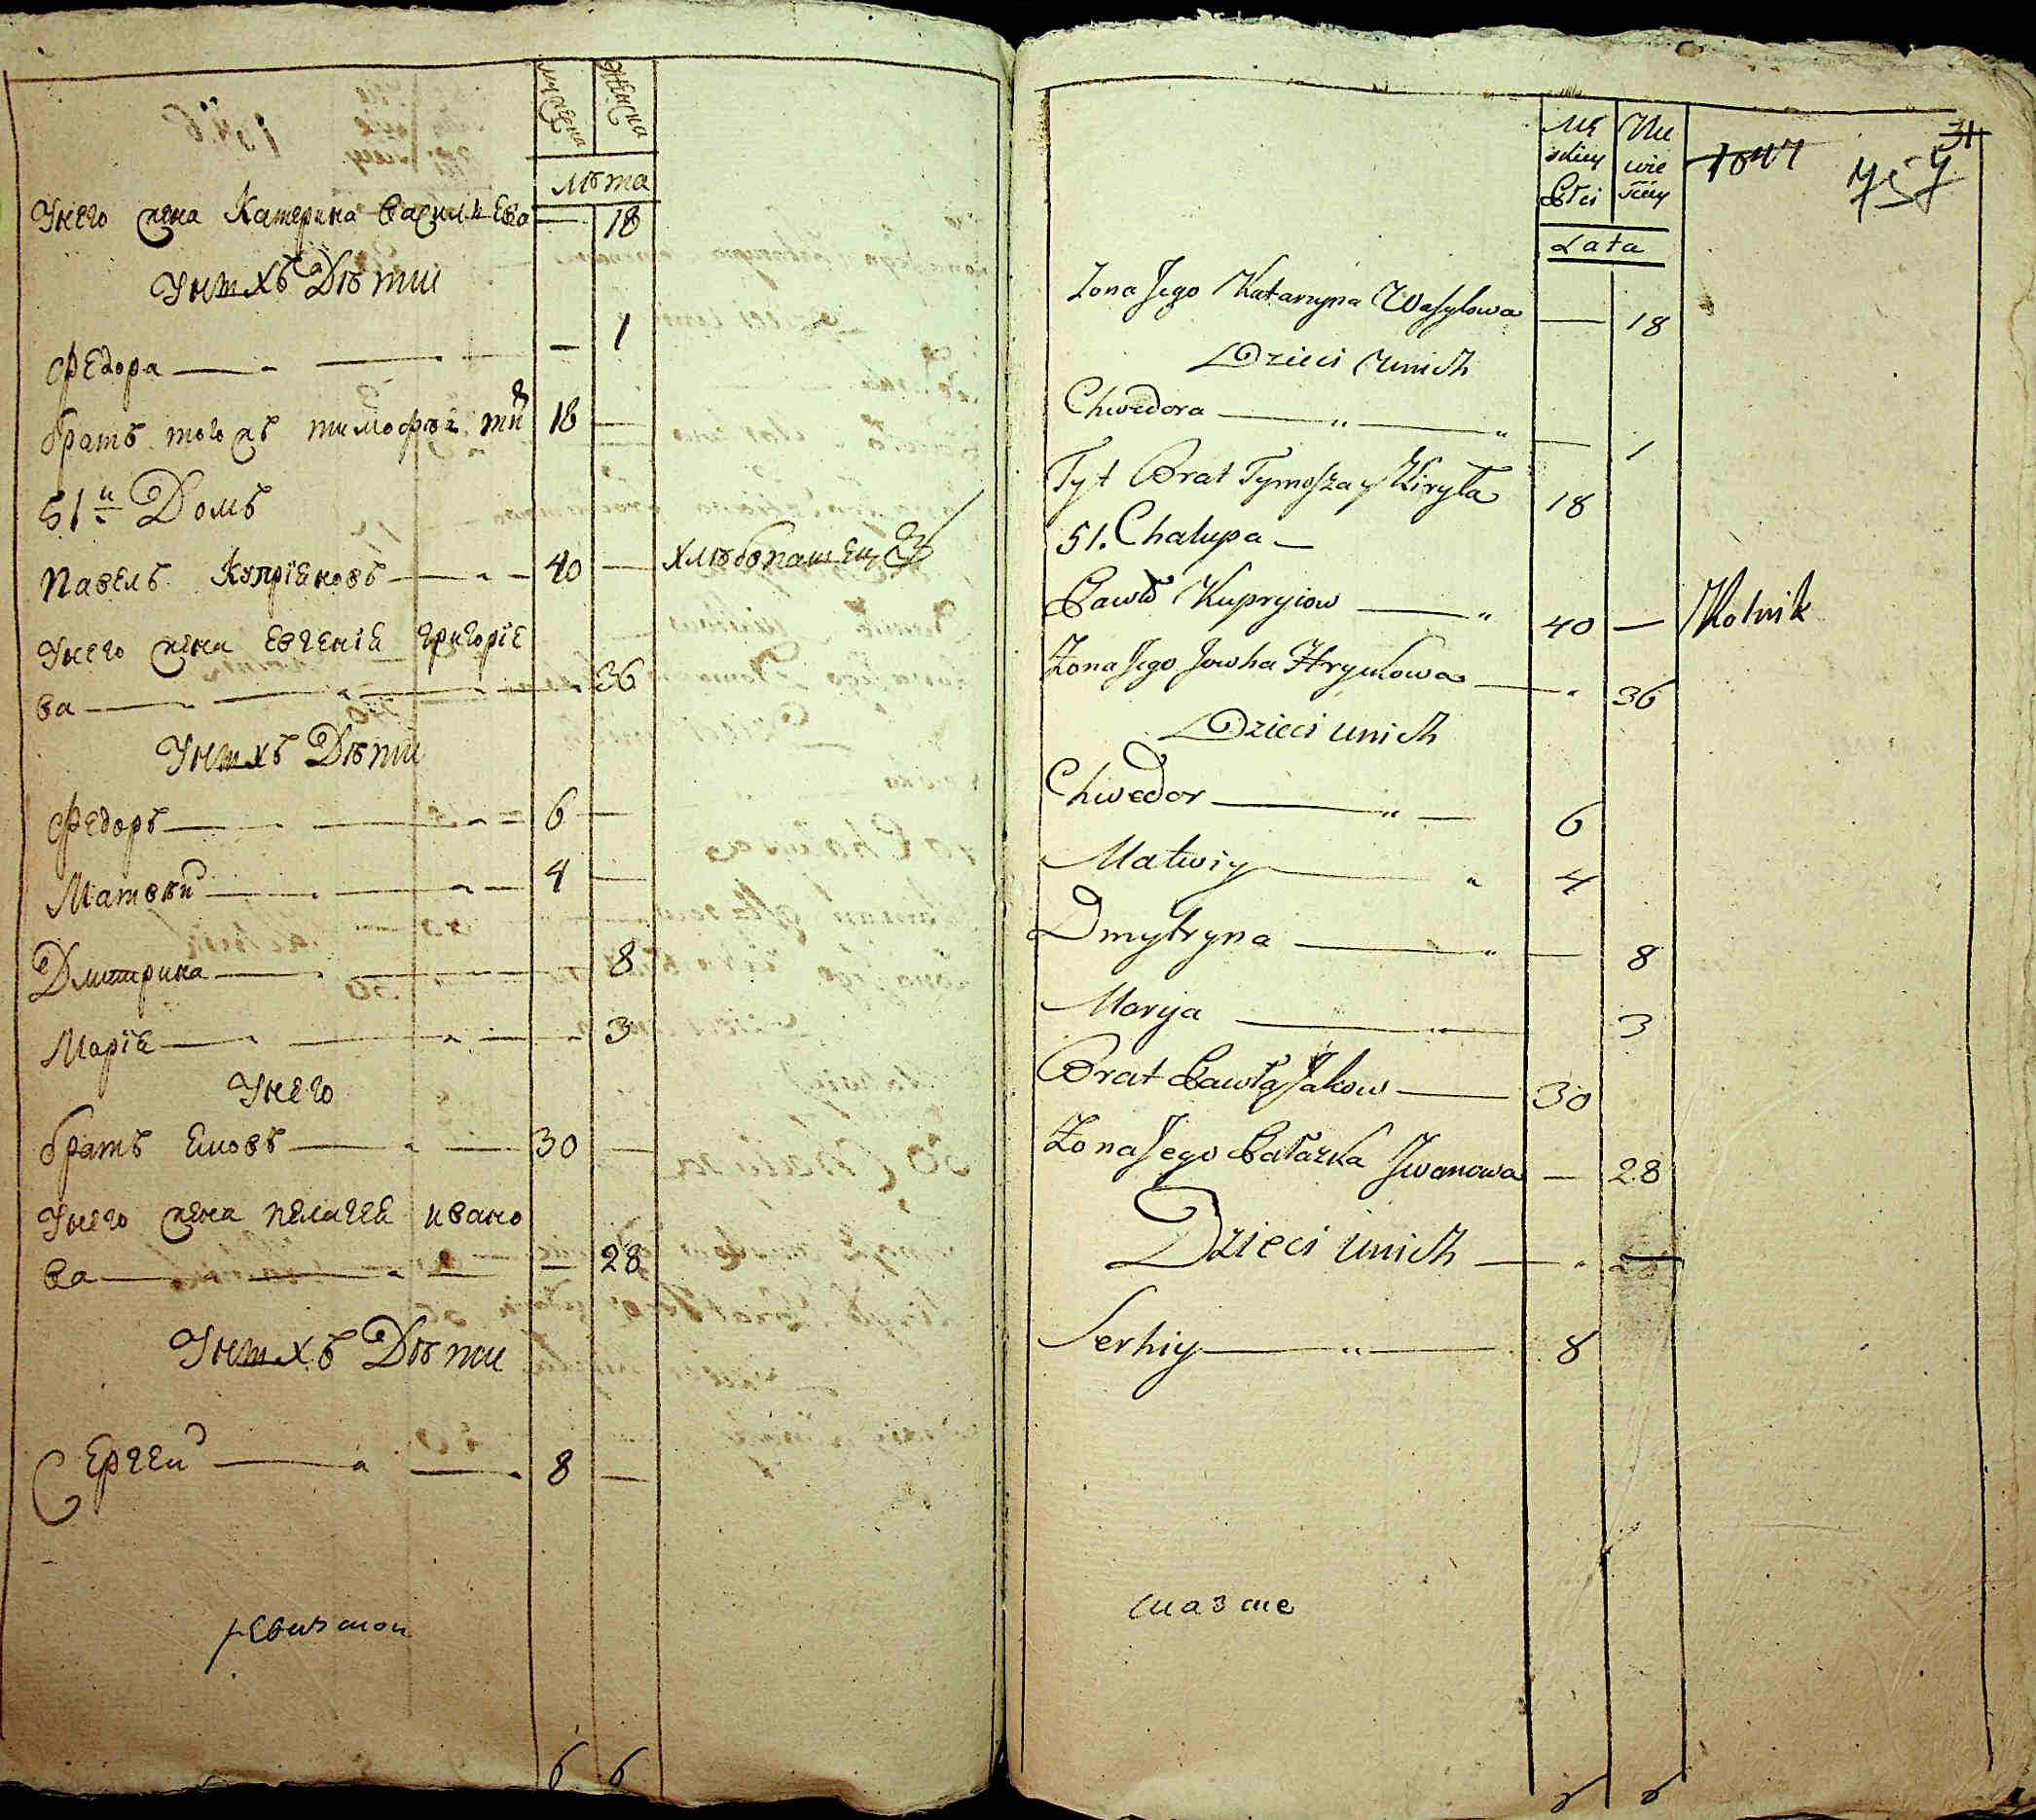 мужска женска
Лѣта
Унего жена Катерина Василѣева — 18
Унихъ Дѣти
Федора — 1
братъ тогожъ тимофѣя 18 —
51й Домъ
Павелъ Купріяновъ — 40 — хлѣбопашецъ
Унего жена Евгенія григоріе
ва — 36
Унихъ Дѣти
Федоръ — 6 —
Матвѣй — 4 —
Дмитрина — 8
Марія — 3
Унего
братъ Яковъ — 30 —
Унего жена пелагея ивано
ва — 28
Унихъ Дѣти
Сергей — 8 —
6 6
31
1047 757
Mę skiey Płci Nie wie sciey
Lata
Zona Jego Kataryna Wasylowa — 18
Dzieci Unich
Chwedora — 1
Tyt Brat Tymosza y Kiryła 18
51. Chalupa —
Pawło Kupryiow — 40 — Rolnik
Zona Jego Jowha Hrynkowa — 36
Dzieci unich
Chwedor — 6
Matwiy 4
Dmytryna — 8
Marya — 3
Brat Pawła Jakow — 30
Zona Jego Pałazka Iwanowa — 28
Dzieci unich —
Serhiy — 8
6 6